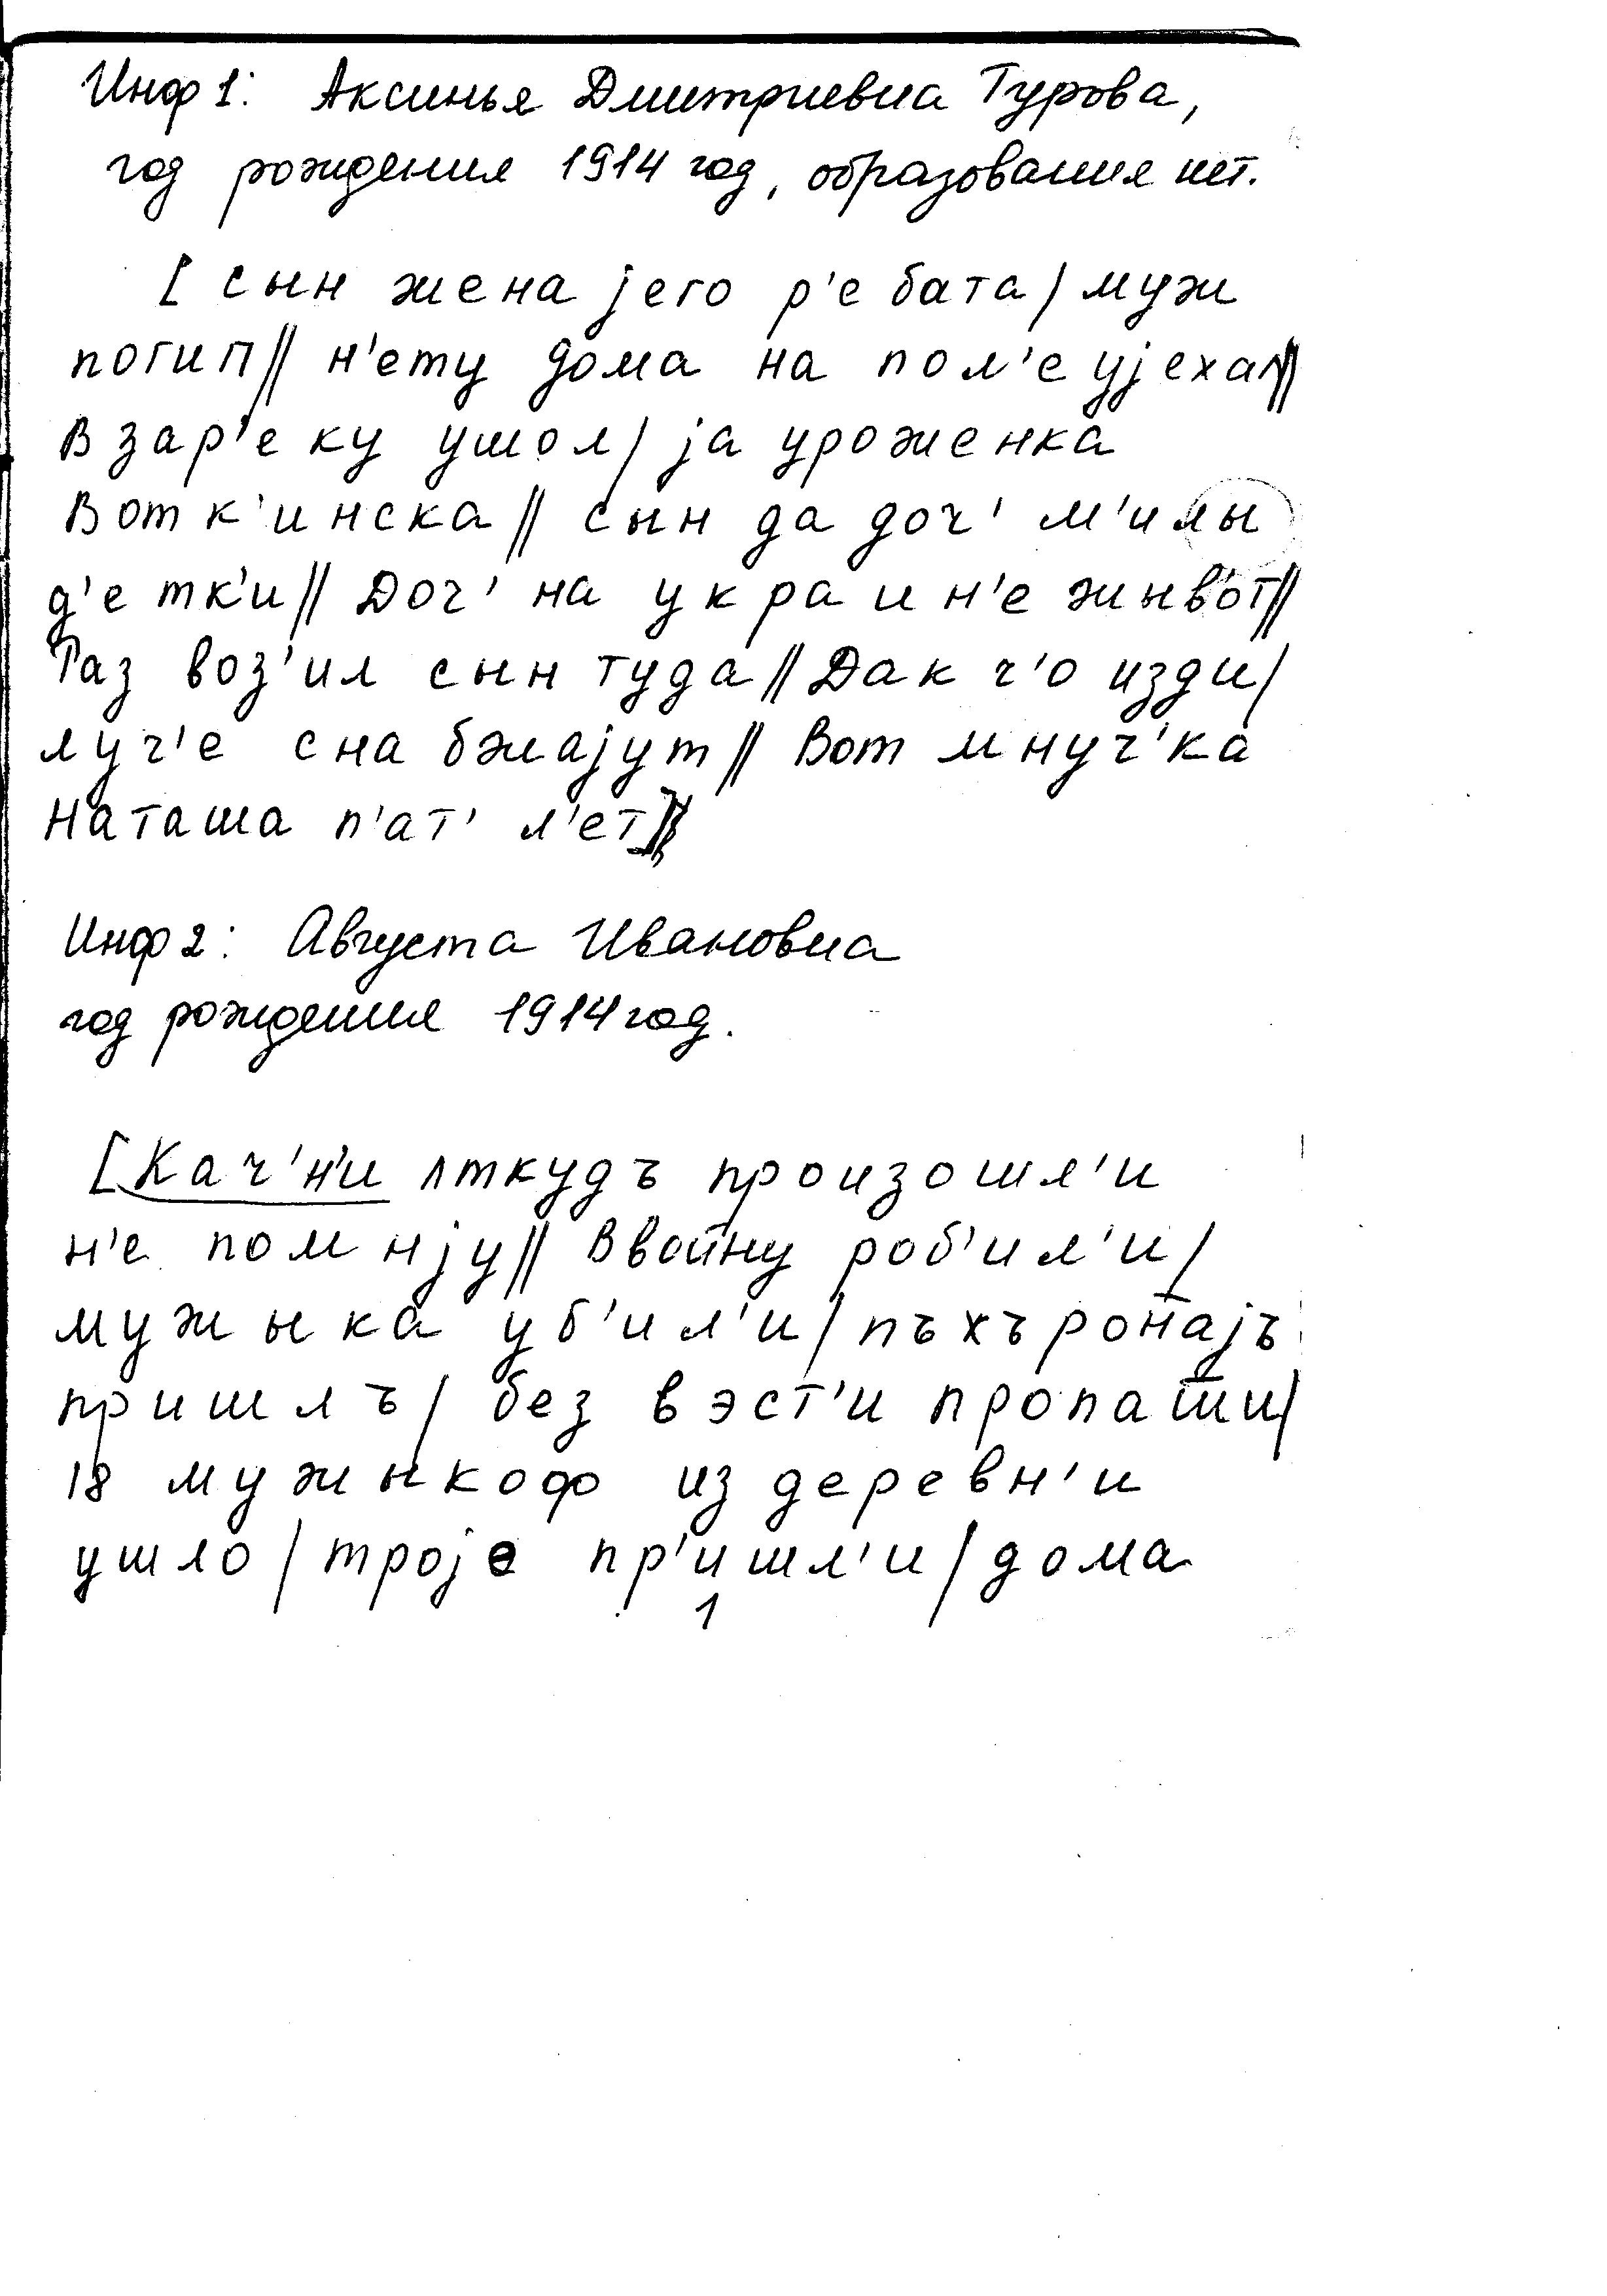 Инф 1: Аксинья Дмитриевна Турова,
год рождения 1914 год, образования нет.
[сын жена јего р'ебата/ муж
погип// н'ету дома на пол'е ујехал//
В зар'еку ушол/ ја уроженка
Вотк'инска// сын да доч' м'илы
д'етк'и// Доч' на украин'е жыв'от//
Раз воз'ил сын туда// Дак ч'о изди/
луч'е снабжајут// Вот мнуч'ка
Наташа п'ат' л'ет]//
Инф 2: Августа Ивановна
год рождения 1914 год.
[Кач'н'и ʌткудъ произошл'и
н'е помнју// В войну роб'ил'и/
мужыка уб'ил'и/ пъхъронајъ
пришлъ/ без вэст'и пропаши/
18 мужыкоф из деревн'и
ушло/ троје пр'ишл'и/ дома
1